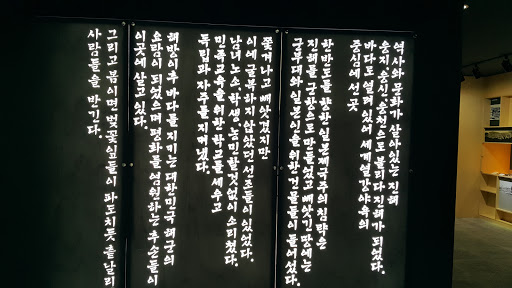 역사와 문화가 살아있는 진해
웅지·웅신·웅천으로 불리다 진해가 되었다.
바다로 열려있어 세계열강 야욕의
중심에 선 곳
한반도를 향한 일본제국주의 침략은
진해를 군항으로 만들었고 빼앗긴 땅에는
군부대와 일본인을 위한 건물들이 들어섰다.
쫓겨나고 빼앗겼지만
이에 굴복하지 않았던 선조들이 있었다.
남녀노소, 학생, 농민 할 것 없이 소리쳤다.
민족교육을 위한 학교를 세우고
독립과 자주를 지켜냈다.
해방 이후 바다를 지키는 대한민국 해군의
요람이 되었으며 평화를 염원하는 후손들이
이곳에 살고 있다.
그리고 봄이면 벚꽃잎들이 파도치듯 흩날리
사람들을 반긴다.